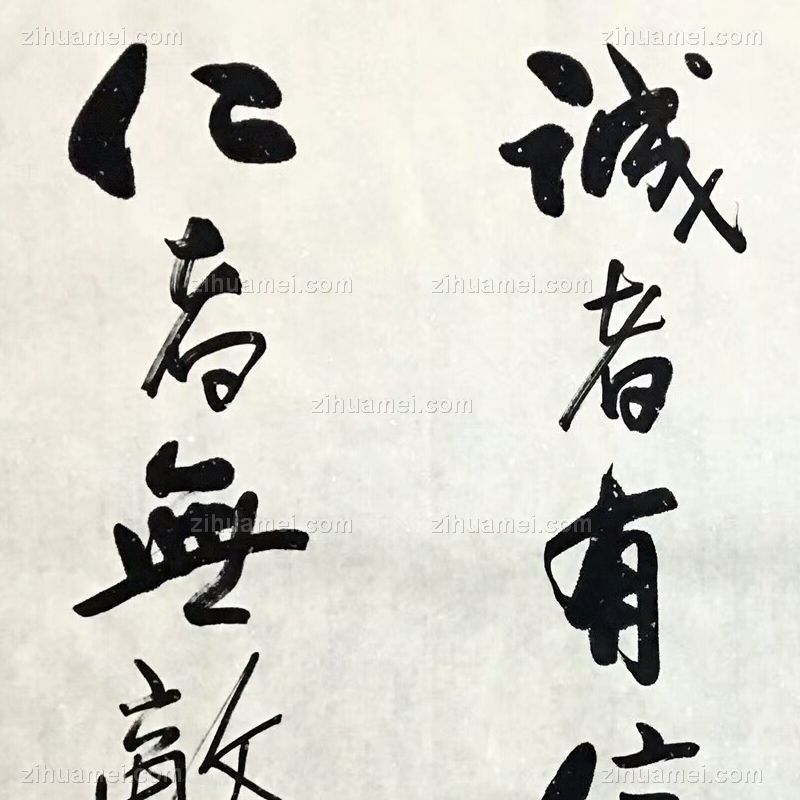 誠者有信
仁者無敵
zihuamei.com zihuamei.com
zihuamei.com zihuamei.com
zihuamei.com
zihuamei.com zihuamei.com
zihuamei.com zihuamei.com